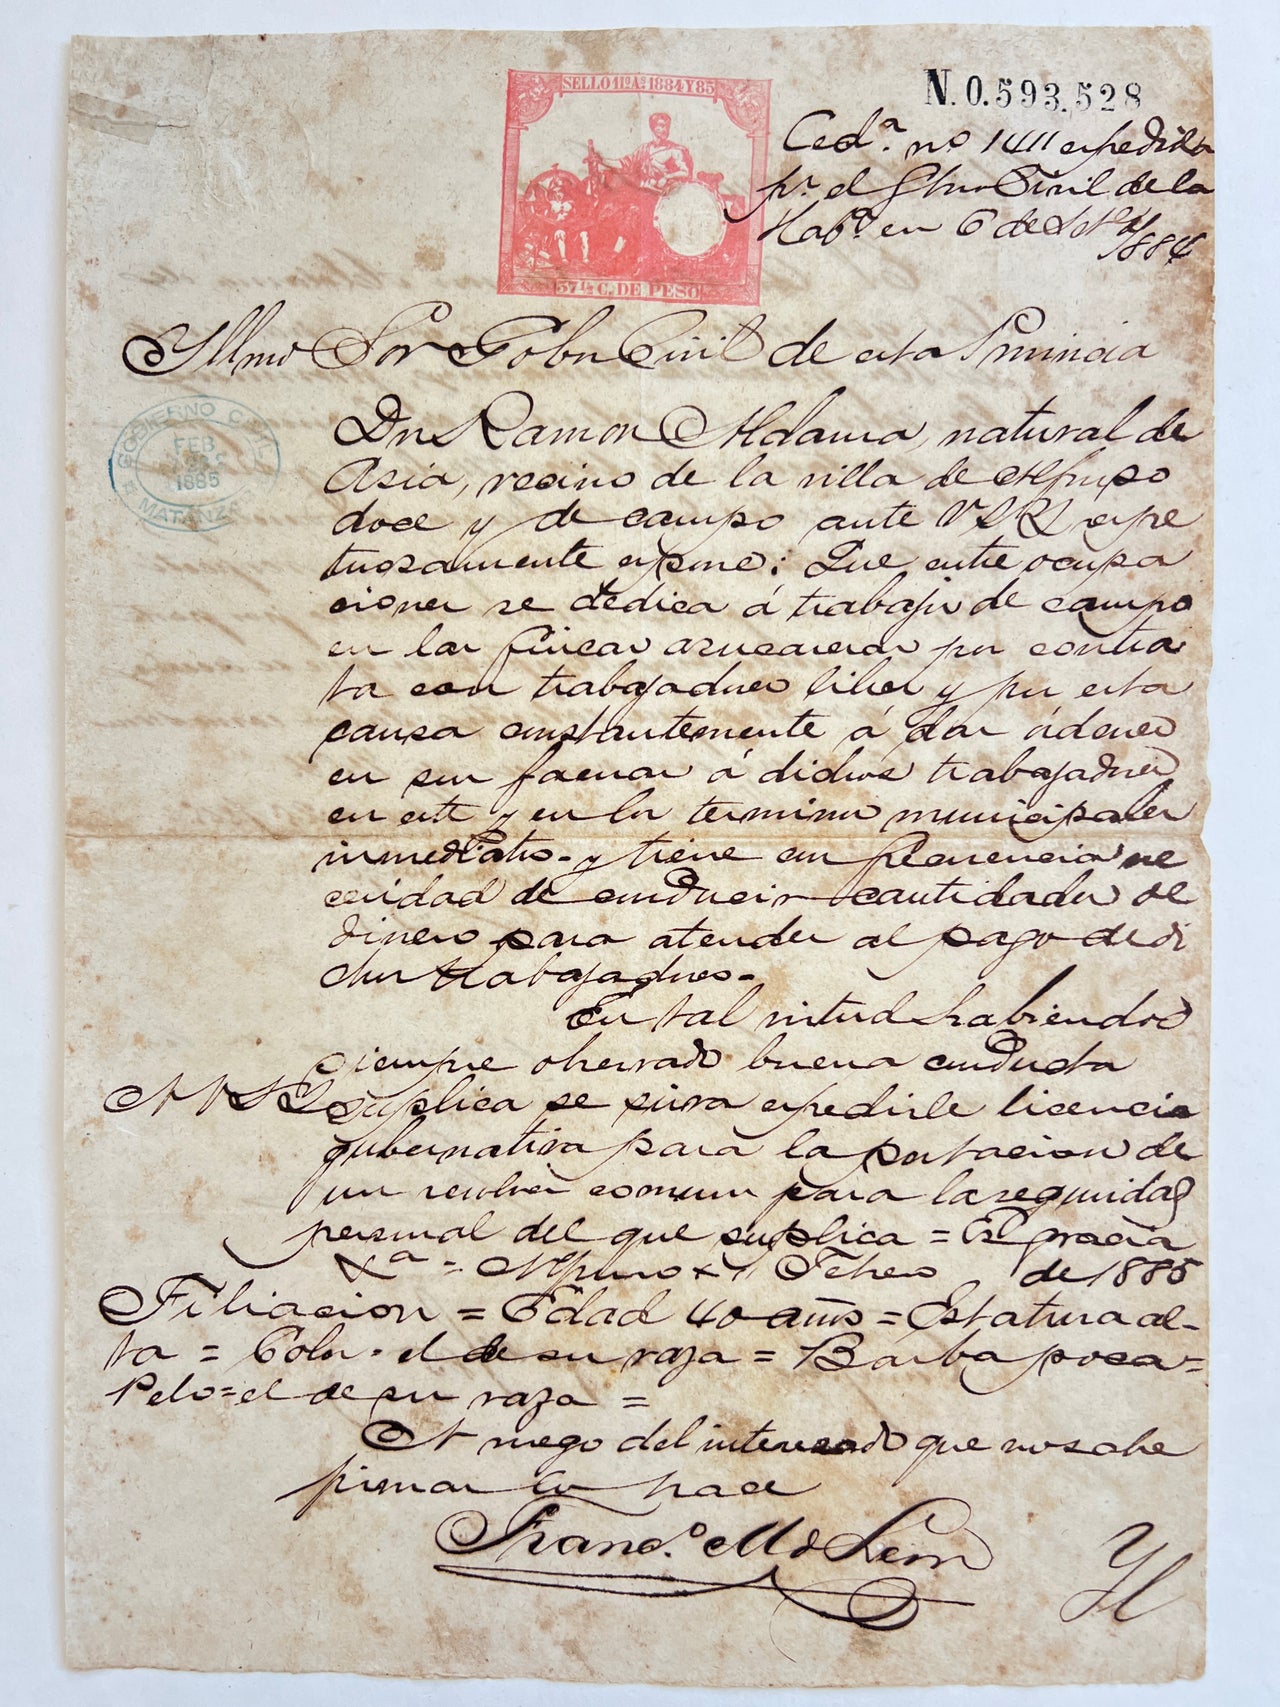 SELLO 11º Aº 1884 Y 85
N. 0.593,528
Ced.ª nº 1411 expedida
pr el Gbno Civil de la
Habª en 6 de 1884
37 1/2 C. DE PESO
Yllmo Sor Gobr Civil de esta Provincia
GOBIERNO CIVIL
FEB
1885
MATANZAS
Dn Ramon Aldama, natural de
Asia, vecino de la villa de Alfonso
doce y de campo ante V S Y respe
tuosamente espone: Que entre ocupa
ciones se dedica á trabajos de campo
en las fincas azucareras por contra
ta con trabajadores libres y por esta
causa constantemente á dar órdenes
en sus faenas á dichos trabajadores
en este y en los terminos municipales
inmediatos - y tiene con frecuencia ne
cesidad de conducir cantidades de
dinero para atender al pago de di
chos trabajadores -
En tal virtud habiendo
siempre observado buena conducta
A V S Y Suplica se sirva espedirle licencia
gubernativa para la portacion de
un revolver comun para la seguridad
personal del que suplica = Es gracia
Xª = Alfonso XII Febero de 1885
Filiacion = Edad 40 años = Estatura al-
ta = Color - el de su raza = Barba poca =
Pelo = el de su raza =
A ruego del interesado que no sabe
firmar lo hace
Franc.º M de Leon